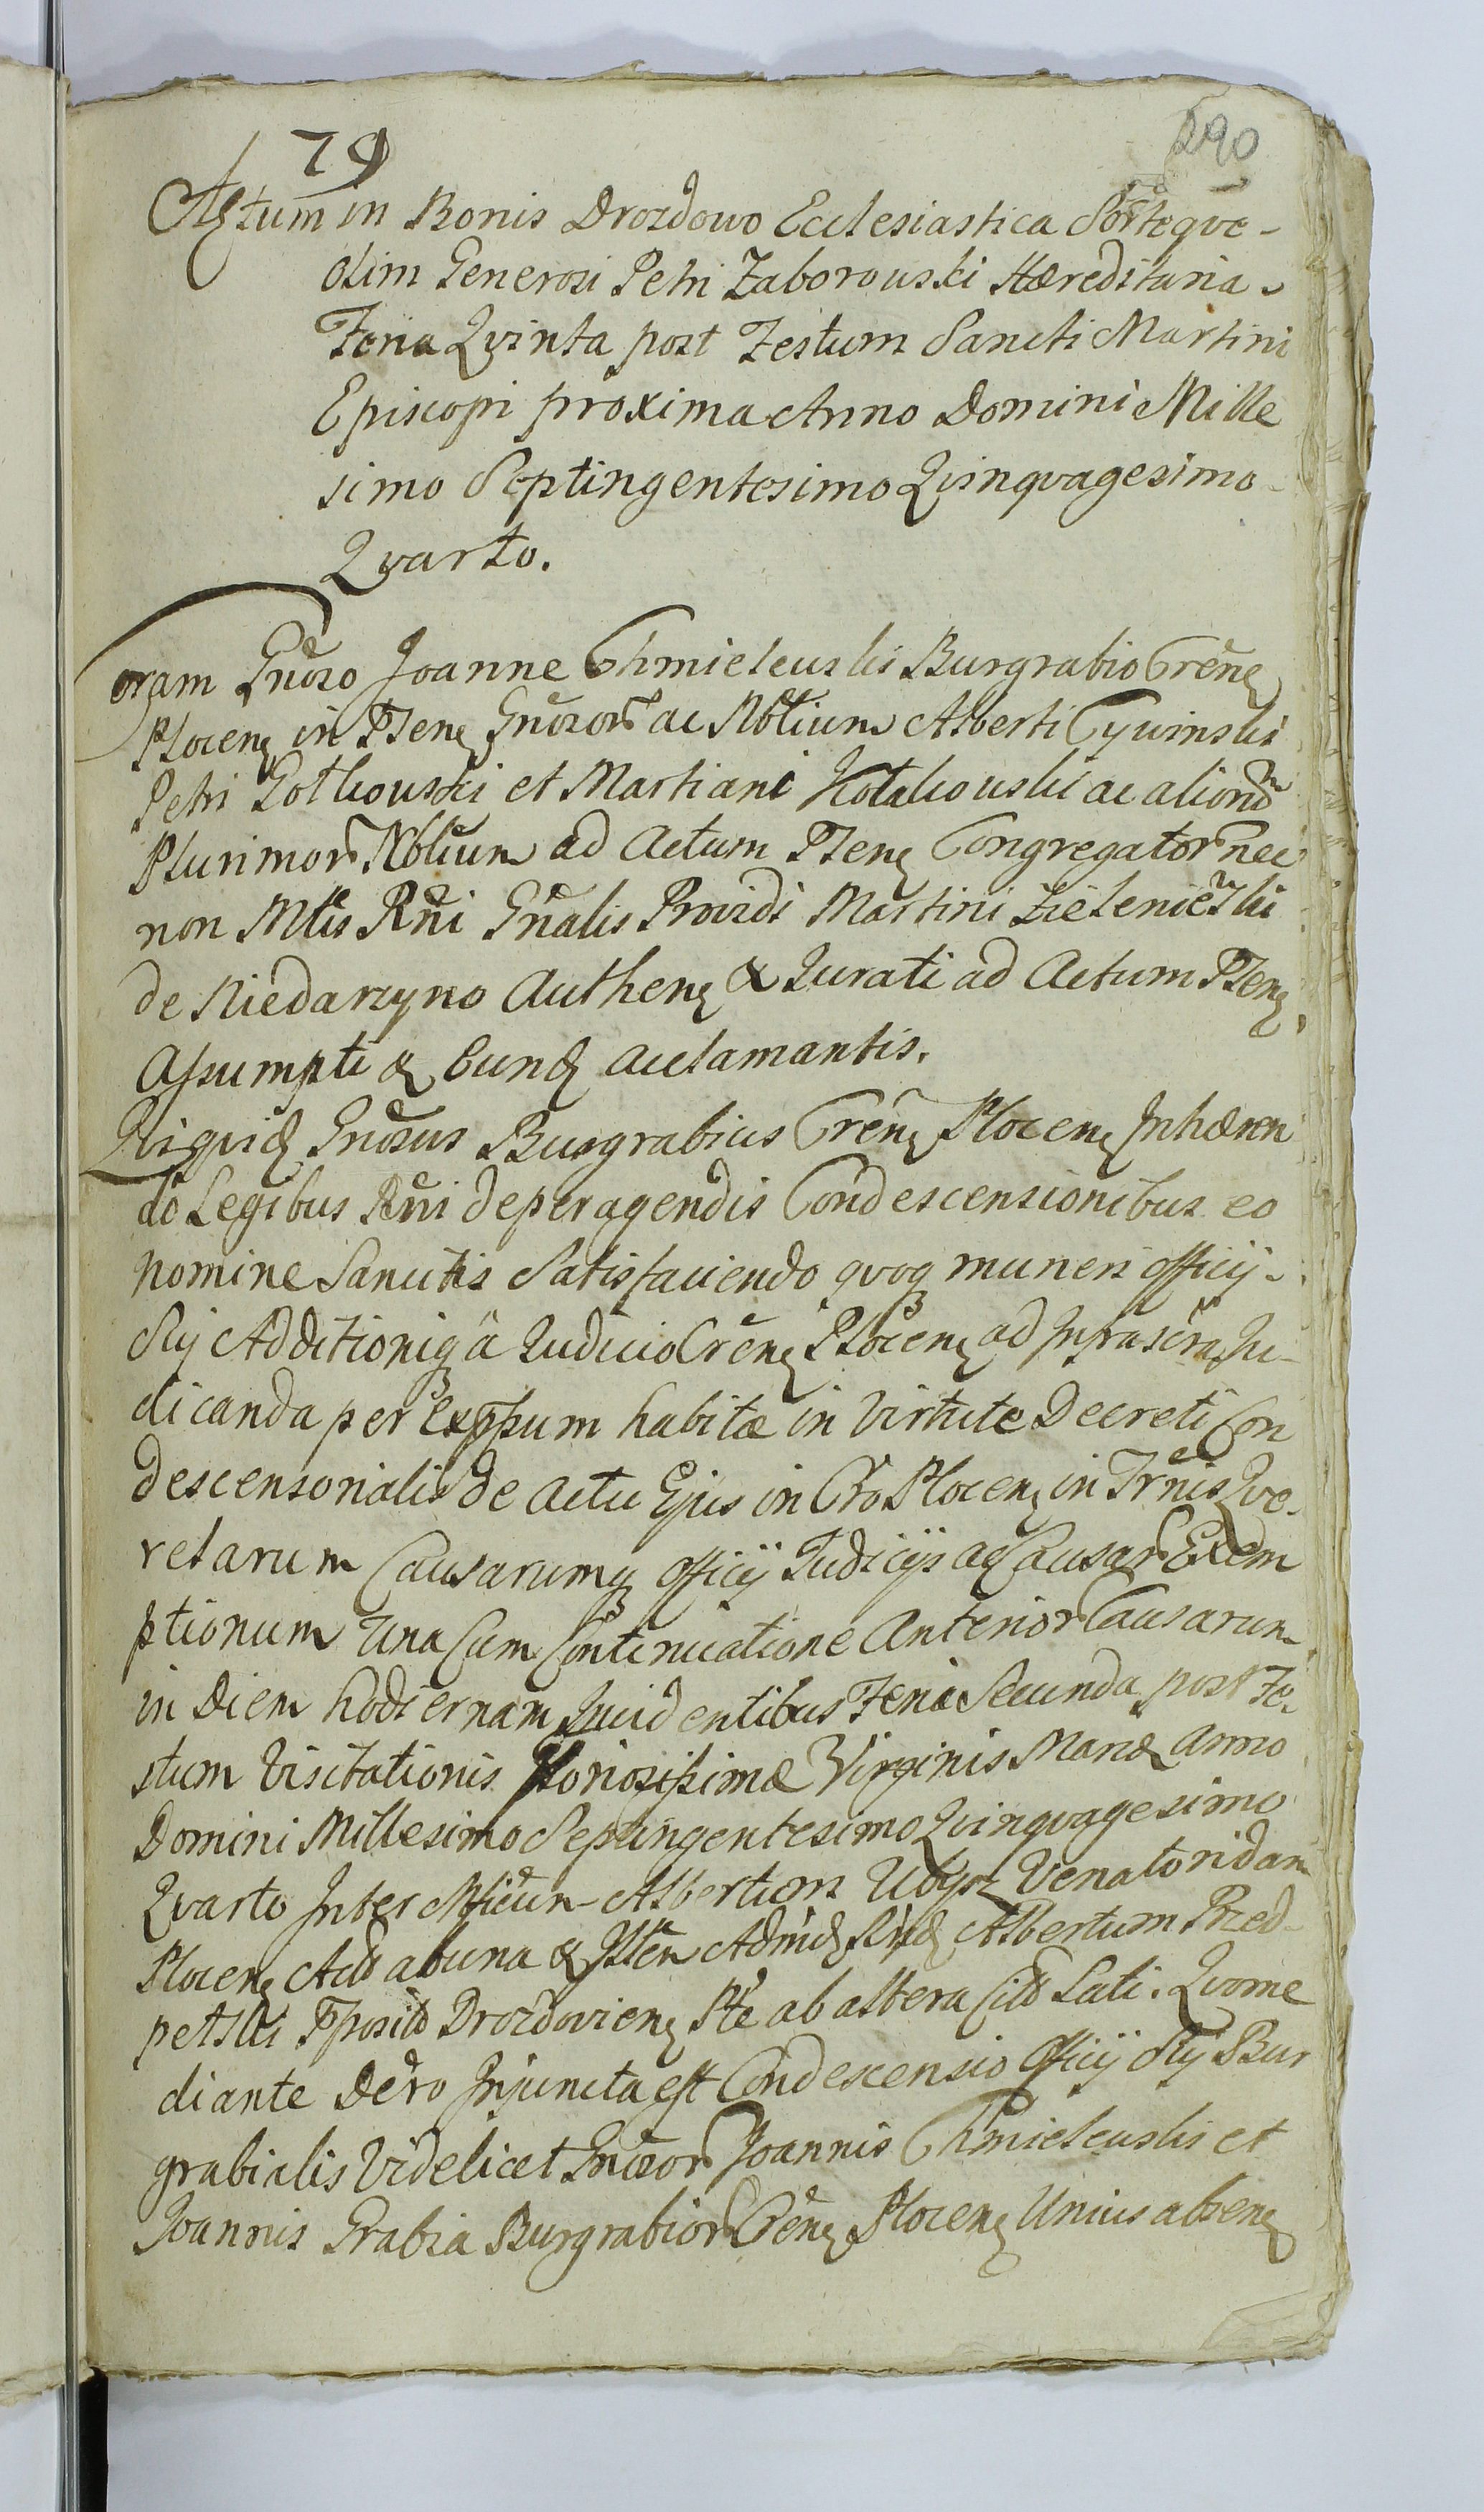 79
290
Actum in Bonis Drozdowo Ecclesiastica Sorteqve
olim Generosi Petri Zaborowski Hæreditaria
Feria Qvinta post Festum Sancti Martini
Episcopi proxima Anno Domini Mille
simo Septingentesimo Qvinqvagesimo
Qvarto.
Coram Gnoso Joanne Chmielewski Burgrabio Cren
Plocen in Psen Gnosor ac Nblium Alberti Cywinski
Petri Gotkowski et Martiani Kotakowski ac alior
Plurimor Nblium ad Actum Psen Congregator nec
non Mtis Rni Gnalis Providi Martini Zieleniecki
de Niedarzyno Authen & Jurati ad Actum Psen
Assumpti & Eund acclamantis.
Qviqvid Gnosus Burgrabius Cren Plocen Inhæren
do Legibus Rni de peragendis Condescensionibus eo
nomine Sancitis Satisfaciendo qvoq muneri officij
Sui Additioniq a Judicio Cren Plocen ad Infrascra Ju-
dicanda per Expssum habitæ in Virtute Decreti Con
descensorialis de Actu Ejus in Cro Plocen in Trnis Qve-
relarum Causarumq officij Judicijs ac Causar Exem
ptionum Una Cum Continuatione Anterior Causarum
in Diem hodiernam Incidentibus Feria Secunda post Fe-
stum Visitationis Gloriosissimæ Virginis Mariæ Anno
Domini Millesimo Septingentesimo Qvinqvagesimo
Qvarto Inter Mficum Albertum Venatoridam
Plocen Act ab una & Albertum Przed-
petski Pposit Drozdovien Pte ab altera Cit Lati. Qvo me
diante Decro Injuncta est Condescensio Officij Sui Bur
grabialis Videlicet Gnosor Joannis Chmielewski et
Joannis Grabia Burgrabior Cren Plocen Unius absen